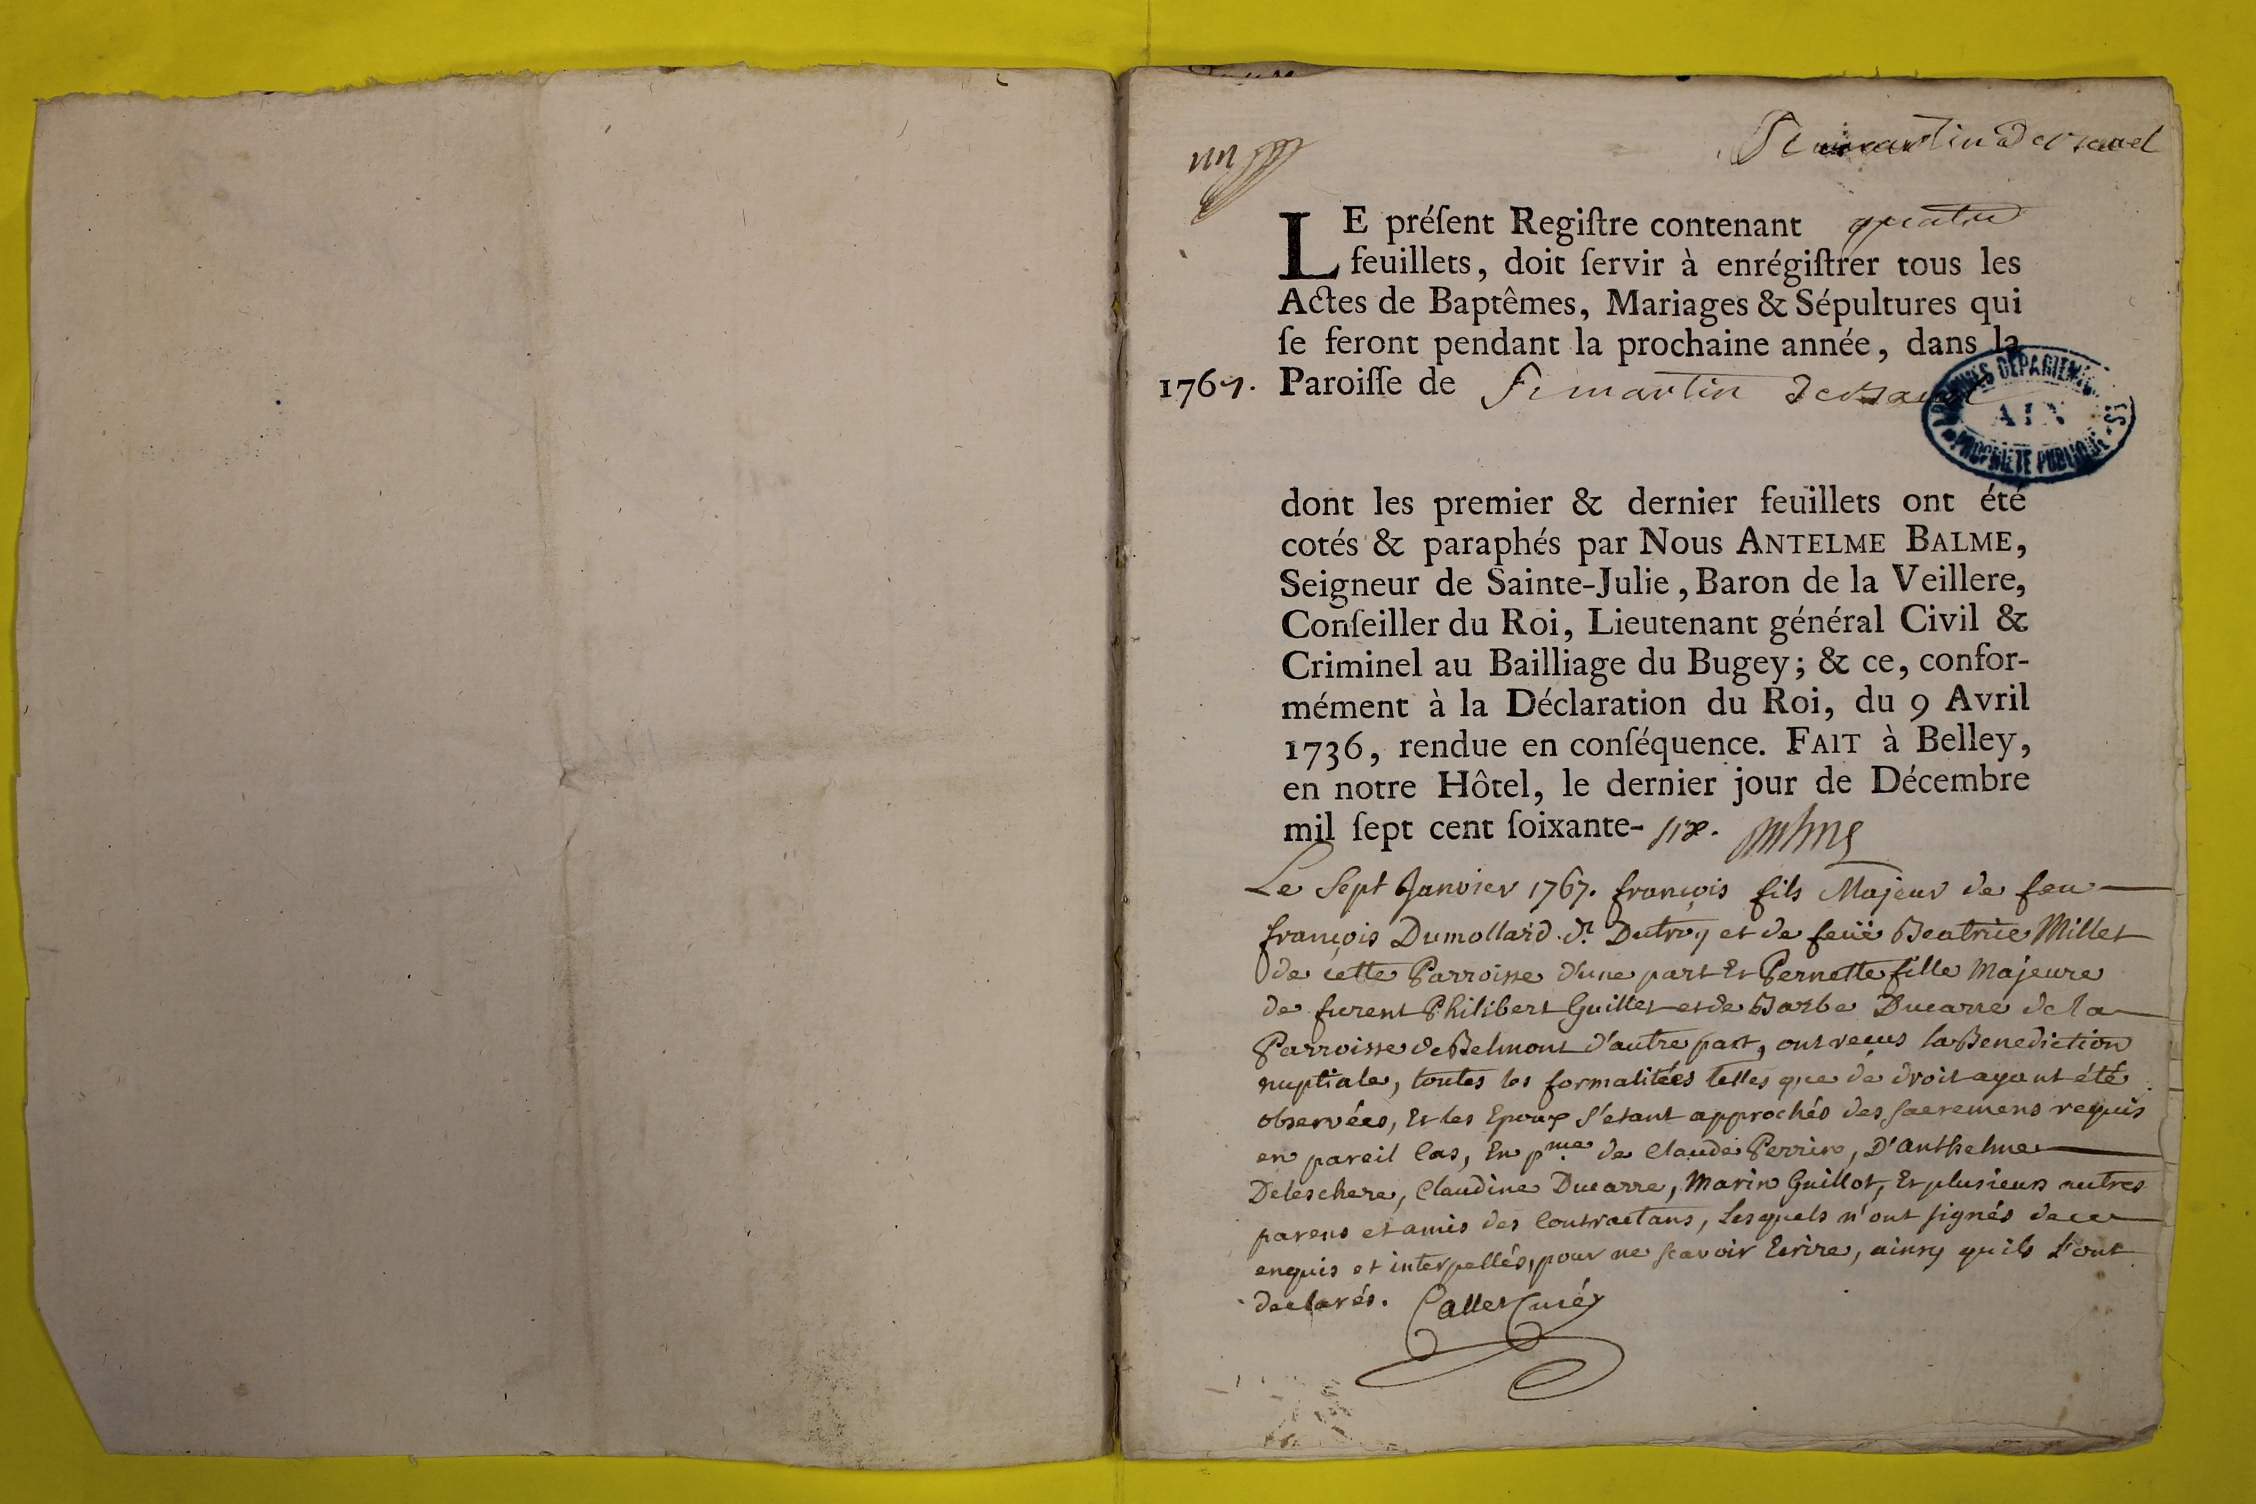 un
St martin de Bavel
LE préſent Regiſtre contenant quatre
feuillets, doit ſervir à enrégiſtrer tous les
Actes de Baptêmes, Mariages & Sépultures qui
ſe feront pendant la prochaine année, dans la
1767. Paroiſſe de St martin de Bavel
ARCHIVES DÉPARTEMENTALES
AIN
PROPRIÉTÉ PUBLIQUE
dont les premier & dernier feuillets ont été
cotés & paraphés par Nous ANTELME BALME,
Seigneur de Sainte-Julie, Baron de la Veillere,
Conſeiller du Roi, Lieutenant général Civil &
Criminel au Bailliage du Bugey; & ce, confor-
mément à la Déclaration du Roi, du 9 Avril
1736, rendue en conſéquence. FAIT à Belley,
en notre Hôtel, le dernier jour de Décembre
mil ſept cent ſoixante- six.
Le Sept Janvier 1767. françois fils Majeur de feu
françois Dumollard dt. Dutroy et de feüe Beatrice Millet
de cette Parroisse d'une part Et Pernette fille Majeure
de furent Philibert Guillet et de Barbe Ducarre de la
Parroisse de Belmont d'autre part, ont reçus la Benediction
nuptiale, toutes les formalitées telles que de droit ayant été
observées, Et les Epoux s'etant approchés des sacremens requis
en pareil Cas, En pnce de Claude Perrin, D'anthelme
Deleschere, Claudine Ducarre, Marin Guillot, Et plusieurs autres
parens et amis des Contractans, Lesquels n'ont signés de ce
enquis et interpellés, pour ne scavoir Ecrire, ainsy quils l'ont
declarés. Callet Curé